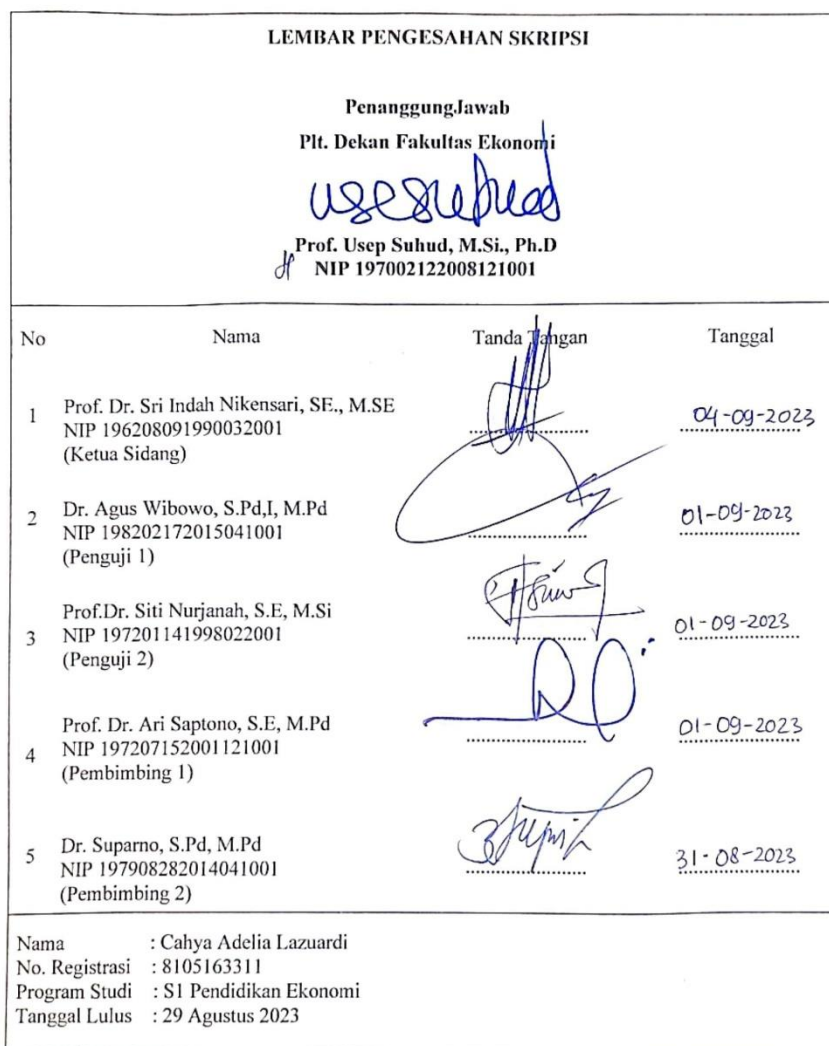 LEMBAR PENGESAHAN SKRIPSI
PenanggungJawab
Plt. Dekan Fakultas Ekonomi
Prof. Usep Suhud, M.Si., Ph.D
NIP 197002122008121001
No Nama Tanda Tangan Tanggal
1 Prof. Dr. Sri Indah Nikensari, SE., M.SE
NIP 196208091990032001
(Ketua Sidang)
04-09-2023
2 Dr. Agus Wibowo, S.Pd,I, M.Pd
NIP 198202172015041001
(Penguji 1)
01-09-2023
3 Prof.Dr. Siti Nurjanah, S.E, M.Si
NIP 197201141998022001
(Penguji 2)
01-09-2023
4 Prof. Dr. Ari Saptono, S.E, M.Pd
NIP 197207152001121001
(Pembimbing 1)
01-09-2023
5 Dr. Suparno, S.Pd, M.Pd
NIP 197908282014041001
(Pembimbing 2)
31-08-2023
Nama : Cahya Adelia Lazuardi
No. Registrasi : 8105163311
Program Studi : S1 Pendidikan Ekonomi
Tanggal Lulus : 29 Agustus 2023